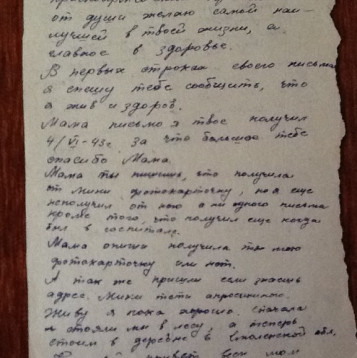 от души желаю самой наи-
лучшей в твоей жизни, а
главное в здоровье.
В первых строках своего письма
я спешу тебе сообщить, что
я жив и здоров.
Мама письмо я твое получил
4/VI-43г. за что большое тебе
спасибо Мама.
Мама ты пишешь, что получила
от Мики фотокарточку, но я еще
неполучил от него а ни одного письма
кроме того, что получил еще когда
был в госпитале.
Мама опиши получила ты мою
фотокарточку или нет.
А так же пришли если знаешь
адрес Мики тети
Живу я пока хорошо. сначала
стояли мы в лесу, а теперь
стоим в деревне в Смоленской обл.